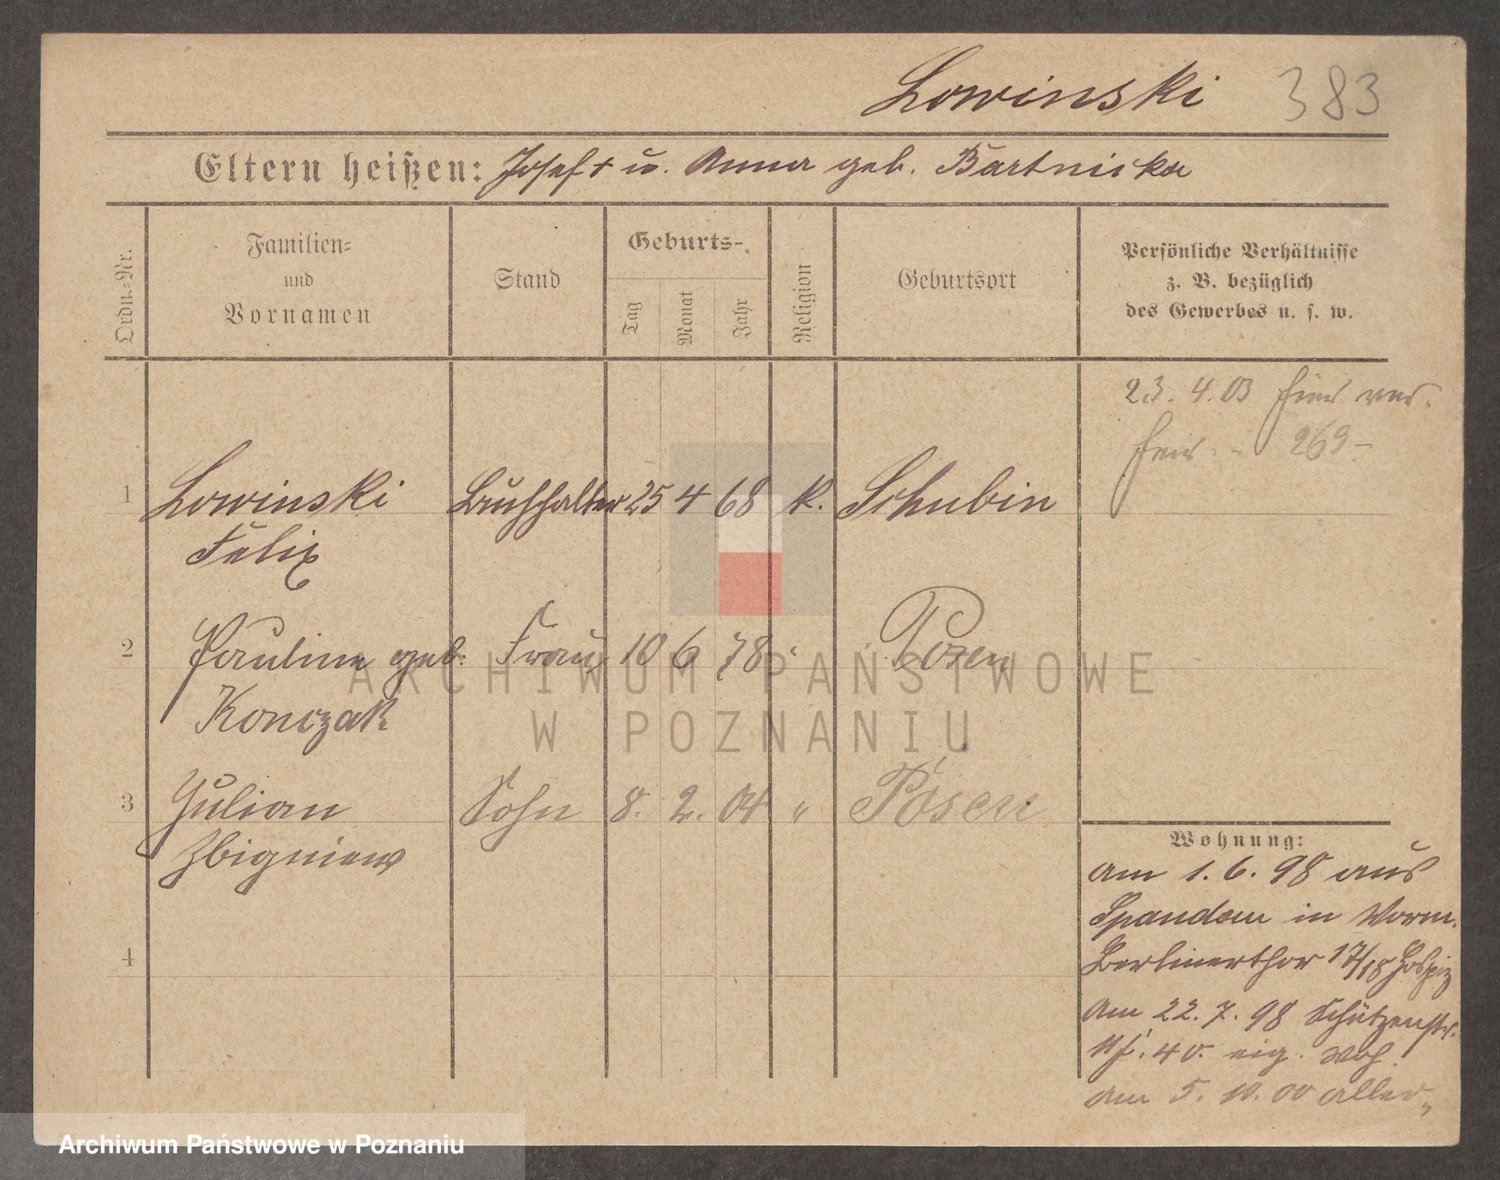 Lowinski 383
Eltern heißen: Josef + u. Anna geb. Bartnicka
Ordn.-Nr.
Familien-
und
Vornamen
Stand
Geburts-
Tag
Monat
Jahr
Religion
Geburtsort
Persönliche Verhältnisse
z. B. bezüglich
des Gewerbes u. s. w.
23. 4. 03
269-
1 Lowinski Buchhalter 25 4 68 k. Schubin
Felix
2 Pauline geb. Frau 10 6 78 " Posen
Konczak
3 Julian Sohn 8. 2. 04 " Posen
Zbigniew
4
Wohnung:
am 1. 6. 98 aus
Spandau in Worm.
Berlinerthor 17/18 Hospiz
am 22. 7. 98 Schützenstr.
40. eig. Woh.
am 5. 10. 00 aller-
ARCHIWUM PAŃSTWOWE
W POZNANIU
Archiwum Państwowe w Poznaniu